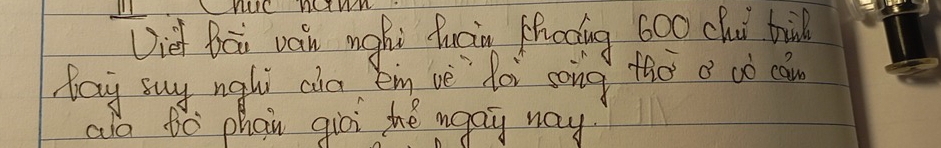 III Chức năng
Viết bài văn nghị luận khoảng 600 chữ trình
bày suy nghĩ của em về lối sống thờ ơ vô cảm
của bộ phận giới trẻ ngày nay.